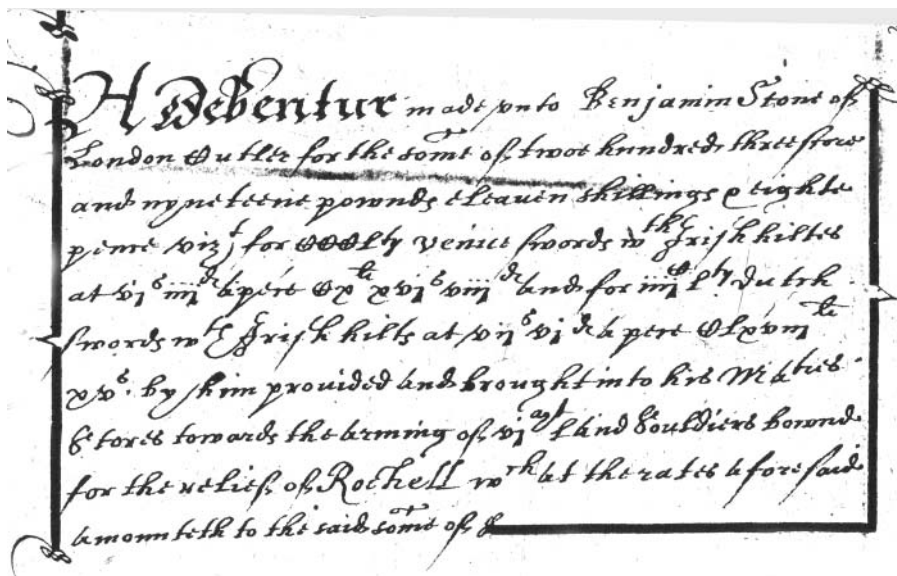 A Debentur made vnto Benjamin Stone of
London Cutler for the some of twoe hundred three score
and nyneteene pownds eleaven shillings & eighte
pence vizt for CCCLty Venice swords wth Irish hiltes
at vis iiiid a pece Cxli xvis viiid and for iiiiC Lty Dutch
swords wth Irish hilts at viis vid a pece Clxviiili
xvs. by him provided and brought into his Maties
Stores towards the arming of land Souldiers bownd
for the relief of Rochell wch at the rates aforesaid
amounteth to the said some of